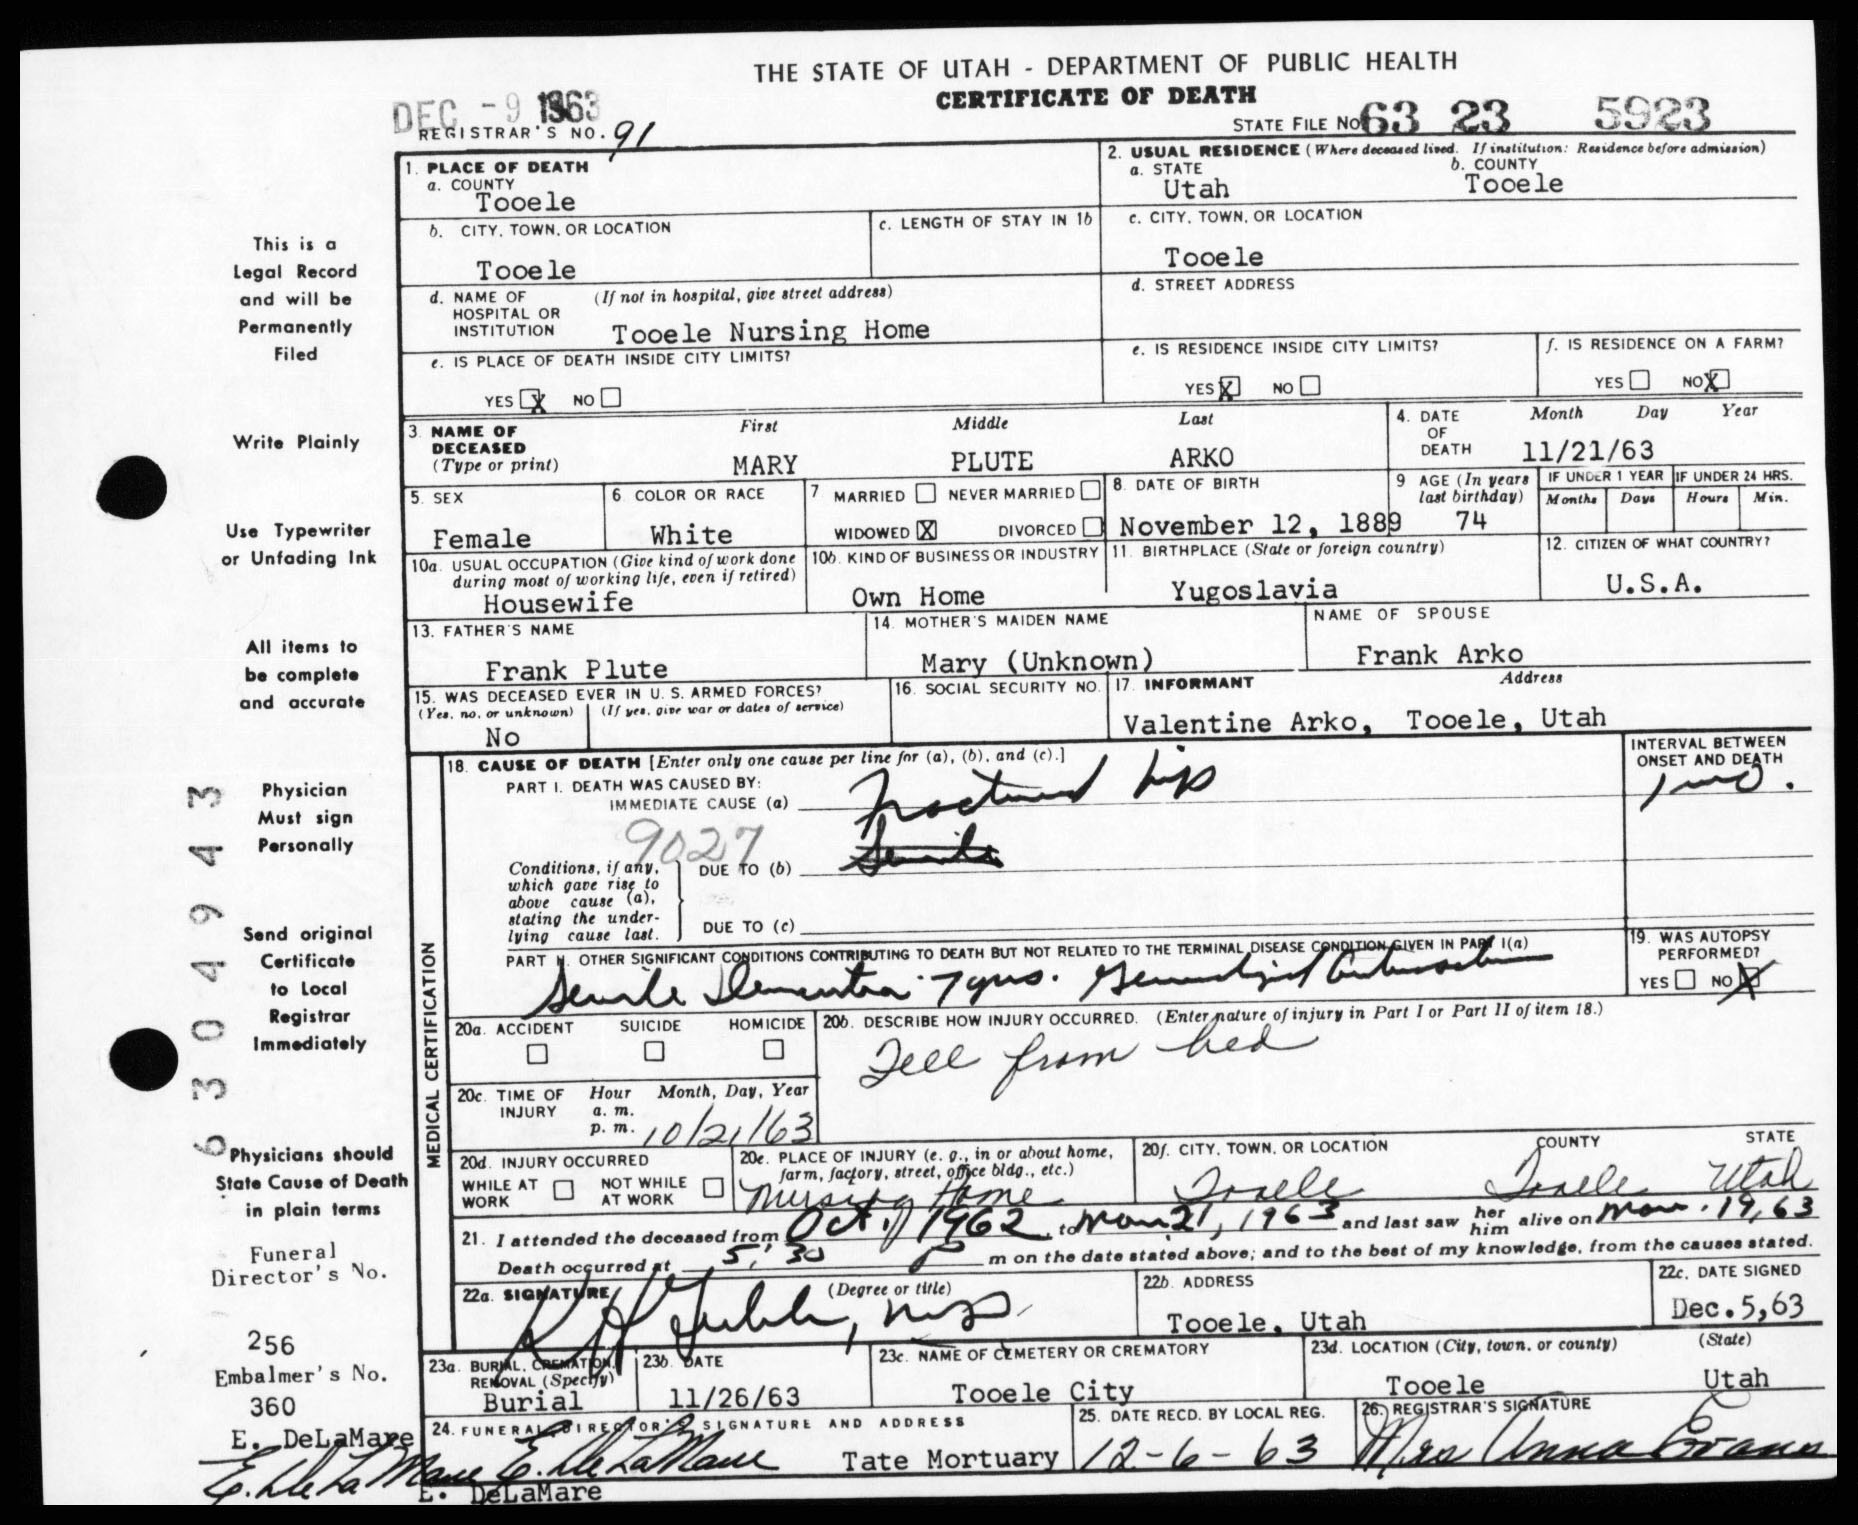 THE STATE OF UTAH - DEPARTMENT OF PUBLIC HEALTH
CERTIFICATE OF DEATH
DEC -9 1963
REGISTRAR'S NO. 91
STATE FILE NO 63 23 5923
This is a
Legal Record
and will be
Permanently
Filed
Write Plainly
Use Typewriter
or Unfading Ink
All items to
be complete
and accurate
Physician
Must sign
Personally
Send original
Certificate
to Local
Registrar
Immediately
Physicians should
State Cause of Death
in plain terms
Funeral
Director's No.
256
Embalmer's No.
360
E. DeLaMare
E. DeLaMare
6 3 0 4 9 4 3
1. PLACE OF DEATH
a. COUNTY
Tooele
2. USUAL RESIDENCE (Where deceased lived. If institution: Residence before admission)
a. STATE
Utah
b. COUNTY
Tooele
b. CITY, TOWN, OR LOCATION
Tooele
c. LENGTH OF STAY IN 1b
c. CITY, TOWN, OR LOCATION
Tooele
d. NAME OF HOSPITAL OR INSTITUTION
(If not in hospital, give street address)
Tooele Nursing Home
d. STREET ADDRESS
e. IS PLACE OF DEATH INSIDE CITY LIMITS?
YES X NO
e. IS RESIDENCE INSIDE CITY LIMITS?
YES X NO
f. IS RESIDENCE ON A FARM?
YES NO X
3. NAME OF DECEASED
(Type or print)
First Middle Last
MARY PLUTE ARKO
4. DATE OF DEATH
Month Day Year
11/21/63
5. SEX
Female
6. COLOR OR RACE
White
7 MARRIED NEVER MARRIED
WIDOWED X DIVORCED
8. DATE OF BIRTH
November 12, 1889
9 AGE (In years last birthday)
74
IF UNDER 1 YEAR
Months Days
IF UNDER 24 HRS.
Hours Min.
10a. USUAL OCCUPATION (Give kind of work done
during most of working life, even if retired)
Housewife
10b. KIND OF BUSINESS OR INDUSTRY
Own Home
11. BIRTHPLACE (State or foreign country)
Yugoslavia
12. CITIZEN OF WHAT COUNTRY?
U.S.A.
13. FATHER'S NAME
Frank Plute
14. MOTHER'S MAIDEN NAME
Mary (Unknown)
NAME OF SPOUSE
Frank Arko
15. WAS DECEASED EVER IN U. S. ARMED FORCES?
(Yes, no, or unknown) (If yes, give war or dates of service)
No
16. SOCIAL SECURITY NO.
17. INFORMANT Address
Valentine Arko, Tooele, Utah
MEDICAL CERTIFICATION
18. CAUSE OF DEATH [Enter only one cause per line for (a), (b), and (c).]
PART I. DEATH WAS CAUSED BY:
IMMEDIATE CAUSE (a) Fractured hip
INTERVAL BETWEEN
ONSET AND DEATH
1 mo.
9027
Conditions, if any,
which gave rise to
above cause (a),
stating the under-
lying cause last.
DUE TO (b)
DUE TO (c)
PART II. OTHER SIGNIFICANT CONDITIONS CONTRIBUTING TO DEATH BUT NOT RELATED TO THE TERMINAL DISEASE CONDITION GIVEN IN PART I(a)
Senile Dementia 7 yrs. Generalized
19. WAS AUTOPSY PERFORMED?
YES NO X
20a. ACCIDENT SUICIDE HOMICIDE
20b. DESCRIBE HOW INJURY OCCURRED. (Enter nature of injury in Part I or Part II of item 18.)
Fell from bed
20c. TIME OF INJURY
Hour Month, Day, Year
a. m.
p. m. 10/21/63
20d. INJURY OCCURRED
WHILE AT WORK NOT WHILE AT WORK
20e. PLACE OF INJURY (e. g., in or about home,
farm, factory, street, office bldg., etc.)
Nursing Home
20f. CITY, TOWN, OR LOCATION COUNTY STATE
Tooele Tooele Utah
21. I attended the deceased from Oct. 1962 to Nov 21, 1963 and last saw her him alive on Nov. 19, 63
Death occurred at 5:30 p m on the date stated above; and to the best of my knowledge, from the causes stated.
22a. SIGNATURE (Degree or title)
22b. ADDRESS
Tooele, Utah
22c. DATE SIGNED
Dec.5,63
23a. BURIAL, CREMATION, REMOVAL (Specify)
Burial
23b. DATE
11/26/63
23c. NAME OF CEMETERY OR CREMATORY
Tooele City
23d. LOCATION (City, town, or county) (State)
Tooele Utah
24. FUNERAL DIRECTOR'S SIGNATURE AND ADDRESS
E. DeLaMare Tate Mortuary
E. DeLaMare
25. DATE RECD. BY LOCAL REG.
12-6-63
26. REGISTRAR'S SIGNATURE
Mrs Anna Evans